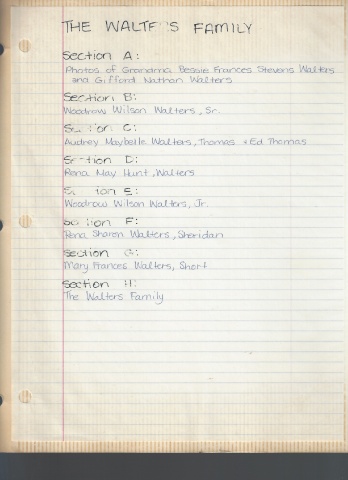 THE WALTERS FAMILY
Section A:
Photos of Grandma Bessie Frances Stevens Walters
and Gifford Nathan Walters
Section B:
Woodrow Wilson Walters, Sr.
Section C:
Audrey Maybelle Walters, Thomas + Ed Thomas
Section D:
Rena May Hunt, Walters
Section E:
Woodrow Wilson Walters, Jr.
Section F:
Rena Sharon Walters, Sheridan
Section G:
Mary Frances Walters, Short
Section H:
The Walters Family